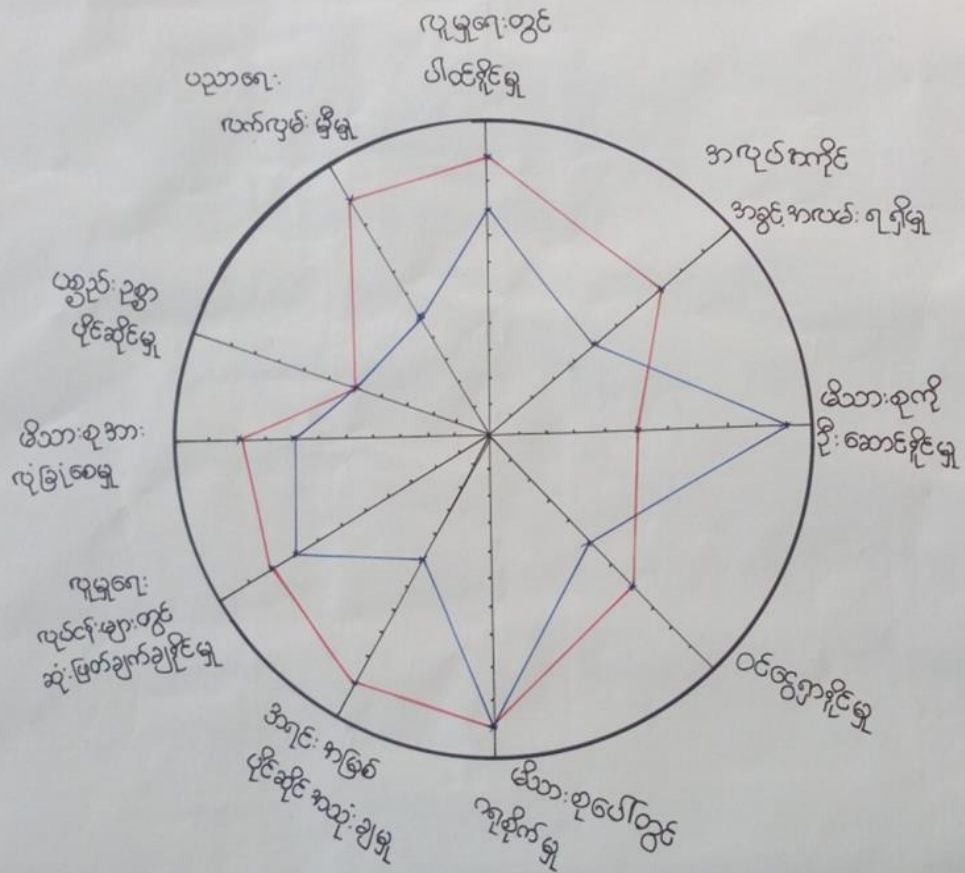 လူမှုရေးတွင်
ပါဝင်နိုင်မှု
အလုပ်အကိုင်
အခွင့်အလမ်းရရှိမှု
မိသားစုကို
ဦးဆောင်နိုင်မှု
ဝင်ငွေရှာနိုင်မှု
မိသားစုပေါ်တွင်
ဂရုစိုက်မှု
အရင်းအမြစ်
ပိုင်ဆိုင်အသုံးချမှု
လူမှုရေး
လုပ်ငန်းများတွင်
ဆုံးဖြတ်ချက်ချနိုင်မှု
မိသားစုအား
လုံခြုံစေမှု
ပစ္စည်းဥစ္စာ
ပိုင်ဆိုင်မှု
ပညာရေး
လက်လှမ်းမှီမှု